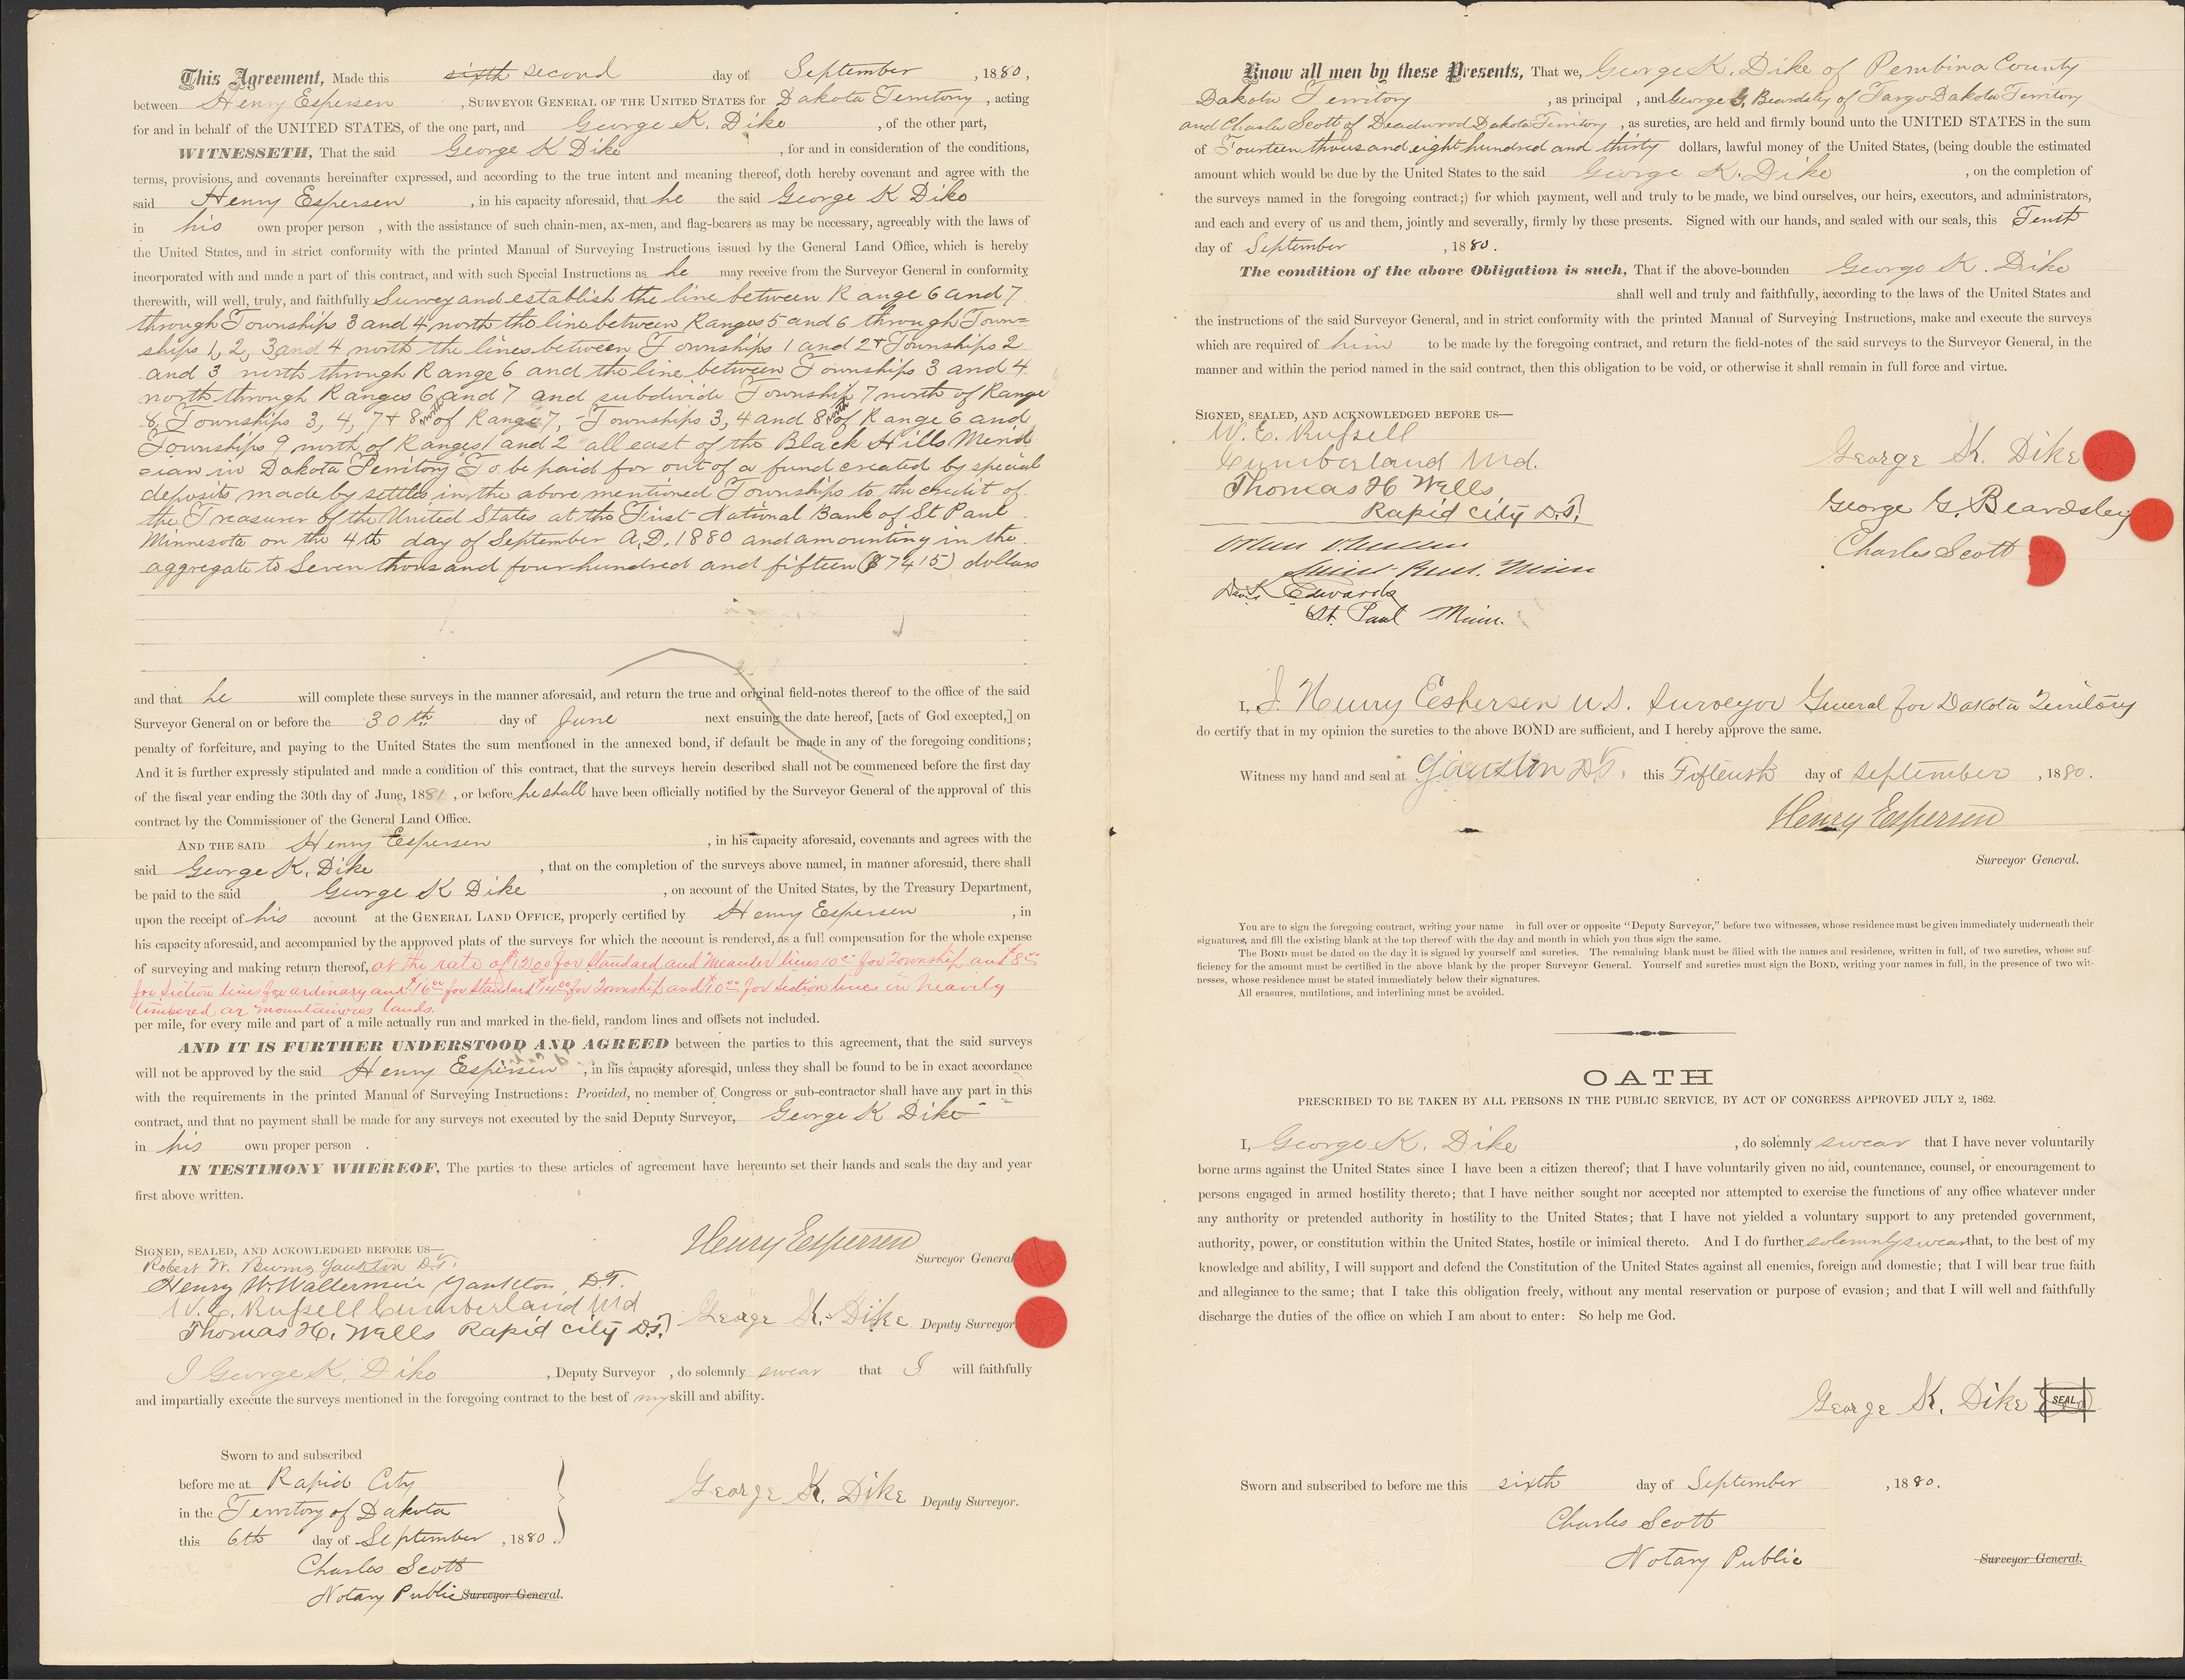 This Agreement, Made this sixth second day of September, 1880,
between Henry Espersen, SURVEYOR GENERAL OF THE UNITED STATES for Dakota Territory, acting
for and in behalf of the UNITED STATES, of the one part, and George K. Dike, of the other part,
WITNESSETH, That the said George K Dike, for and in consideration of the conditions,
terms, provisions, and covenants hereinafter expressed, and according to the true intent and meaning thereof, doth hereby covenant and agree with the
said Henry Espersen, in his capacity aforesaid, that he the said George K Dike
in his own proper person, with the assistance of such chain-men, ax-men, and flag-bearers as may be necessary, agreeably with the laws of
the United States, and in strict conformity with the printed Manual of Surveying Instructions issued by the General Land Office, which is hereby
incorporated with and made a part of this contract, and with such Special Instructions as he may receive from the Surveyor General in conformity
therewith, will well, truly, and faithfully Survey and establish the line between Range 6 and 7
through Townships 3 and 4 north the line between Ranges 5 and 6 through Town=
ships 1, 2, 3 and 4 north the lines between Townships 1 and 2 + Townships 2
and 3 north through Range 6 and the line between Townships 3 and 4
north through Ranges 6 and 7 and subdivide Township 7 north of Range
8, Townships 3, 4, 7 + 8 north of Range 7, Townships 3, 4 and 8 north of Range 6 and
Townships 9 north of Ranges 1 and 2 all east of the Black Hills Merid
=ian in Dakota Territory To be paid for out of a fund created by special
deposits made by settles in the above mentioned Townships to the credit of
the Treasurer of the United States at the First National Bank of St Paul
Minnesota on the 4th day of September A.D. 1880 and amounting in the
aggregate to Seven thousand four hundred and fifteen ($7415) dollars
and that he will complete these surveys in the manner aforesaid, and return the true and original field-notes thereof to the office of the said
Surveyor General on or before the 30th day of June next ensuing the date hereof, [acts of God excepted,] on
penalty of forfeiture, and paying to the United States the sum mentioned in the annexed bond, if default be made in any of the foregoing conditions;
And it is further expressly stipulated and made a condition of this contract, that the surveys herein described shall not be commenced before the first day
of the fiscal year ending the 30th day of June, 1881, or before he shall have been officially notified by the Surveyor General of the approval of this
contract by the Commissioner of the General Land Office.
AND THE SAID Henry Espersen, in his capacity aforesaid, covenants and agrees with the
said George K. Dike, that on the completion of the surveys above named, in manner aforesaid, there shall
be paid to the said George K Dike, on account of the United States, by the Treasury Department,
upon the receipt of his account at the GENERAL LAND OFFICE, properly certified by Henry Espersen, in
his capacity aforesaid, and accompanied by the approved plats of the surveys for which the account is rendered, as a full compensation for the whole expense
of surveying and making return thereof, at the rate of $12.00 for Standard and Meander lines 10.00 for Township and $8.00
for Section lines for ordinary and $16.00 for Standard $14.00 for Township and 10.00 for Section lines in heavily
timbered or mountainous lands.
per mile, for every mile and part of a mile actually run and marked in the field, random lines and offsets not included.
AND IT IS FURTHER UNDERSTOOD AND AGREED between the parties to this agreement, that the said surveys
will not be approved by the said Henry Espersen, in his capacity aforesaid, unless they shall be found to be in exact accordance
with the requirements in the printed Manual of Surveying Instructions: Provided, no member of Congress or sub-contractor shall have any part in this
contract, and that no payment shall be made for any surveys not executed by the said Deputy Surveyor, George K Dike
in his own proper person.
IN TESTIMONY WHEREOF, The parties to these articles of agreement have hereunto set their hands and seals the day and year
first above written.
SIGNED, SEALED, AND ACKOWLEDGED BEFORE US—
Robert W. Burns Yankton D.T.
Henry W. Yankton, D.T.
W. E. Russell Cumberland Md
Thomas H. Wells Rapid City D.T.
Henry Espersen Surveyor General
George K. Dike Deputy Surveyor
I George K. Dike, Deputy Surveyor, do solemnly swear that I will faithfully
and impartially execute the surveys mentioned in the foregoing contract to the best of my skill and ability.
Sworn to and subscribed
before me at Rapid City
in the Territory of Dakota
this 6th day of September, 1880.
Charles Scott
Notary Public Surveyor General.
George K. Dike Deputy Surveyor.
Know all men by these Presents, That we, George K. Dike of Pembina County
Dakota Territory, as principal, and George G. Beardsley of Fargo Dakota Territory
and Charles Scott of Deadwood Dakota Territory, as sureties, are held and firmly bound unto the UNITED STATES in the sum
of Fourteen thousand eight hundred and thirty dollars, lawful money of the United States, (being double the estimated
amount which would be due by the United States to the said George K. Dike, on the completion of
the surveys named in the foregoing contract;) for which payment, well and truly to be made, we bind ourselves, our heirs, executors, and administrators,
and each and every of us and them, jointly and severally, firmly by these presents. Signed with our hands, and sealed with our seals, this Tenth
day of September, 1880.
The condition of the above Obligation is such, That if the above-bounden George K. Dike
shall well and truly and faithfully, according to the laws of the United States and
the instructions of the said Surveyor General, and in strict conformity with the printed Manual of Surveying Instructions, make and execute the surveys
which are required of him to be made by the foregoing contract, and return the field-notes of the said surveys to the Surveyor General, in the
manner and within the period named in the said contract, then this obligation to be void, or otherwise it shall remain in full force and virtue.
SIGNED, SEALED, AND ACKNOWLEDGED BEFORE US—
W. E. Russell
Cumberland Md.
Thomas H Wells
Rapid City D.T.
Saint Paul, Minn
David Edwards
St. Paul Minn.
George K. Dike
George G. Beardsley
Charles Scott
I, J. Henry Espersen U.S. Surveyor General for Dakota Territory
do certify that in my opinion the sureties to the above BOND are sufficient, and I hereby approve the same.
Witness my hand and seal at Yankton D.T. this Fifteenth day of September, 1880.
Henry Espersen
Surveyor General.
You are to sign the foregoing contract, writing your name in full over or opposite "Deputy Surveyor," before two witnesses, whose residence must be given immediately underneath their
signatures, and fill the existing blank at the top thereof with the day and month in which you thus sign the same.
The BOND must be dated on the day it is signed by yourself and sureties. The remaining blank must be filled with the names and residence, written in full, of two sureties, whose suf-
ficiency for the amount must be certified in the above blank by the proper Surveyor General. Yourself and sureties must sign the BOND, writing your names in full, in the presence of two wit-
nesses, whose residence must be stated immediately below their signatures.
All erasures, mutilations, and interlining must be avoided.
OATH
PRESCRIBED TO BE TAKEN BY ALL PERSONS IN THE PUBLIC SERVICE, BY ACT OF CONGRESS APPROVED JULY 2, 1862.
I, George K. Dike, do solemnly swear that I have never voluntarily
borne arms against the United States since I have been a citizen thereof; that I have voluntarily given no aid, countenance, counsel, or encouragement to
persons engaged in armed hostility thereto; that I have neither sought nor accepted nor attempted to exercise the functions of any office whatever under
any authority or pretended authority in hostility to the United States; that I have not yielded a voluntary support to any pretended government,
authority, power, or constitution within the United States, hostile or inimical thereto. And I do further solemnly swear that, to the best of my
knowledge and ability, I will support and defend the Constitution of the United States against all enemies, foreign and domestic; that I will bear true faith
and allegiance to the same; that I take this obligation freely, without any mental reservation or purpose of evasion; and that I will well and faithfully
discharge the duties of the office on which I am about to enter: So help me God.
George K. Dike SEAL
Sworn and subscribed to before me this sixth day of September, 1880.
Charles Scott
Notary Public Surveyor General.